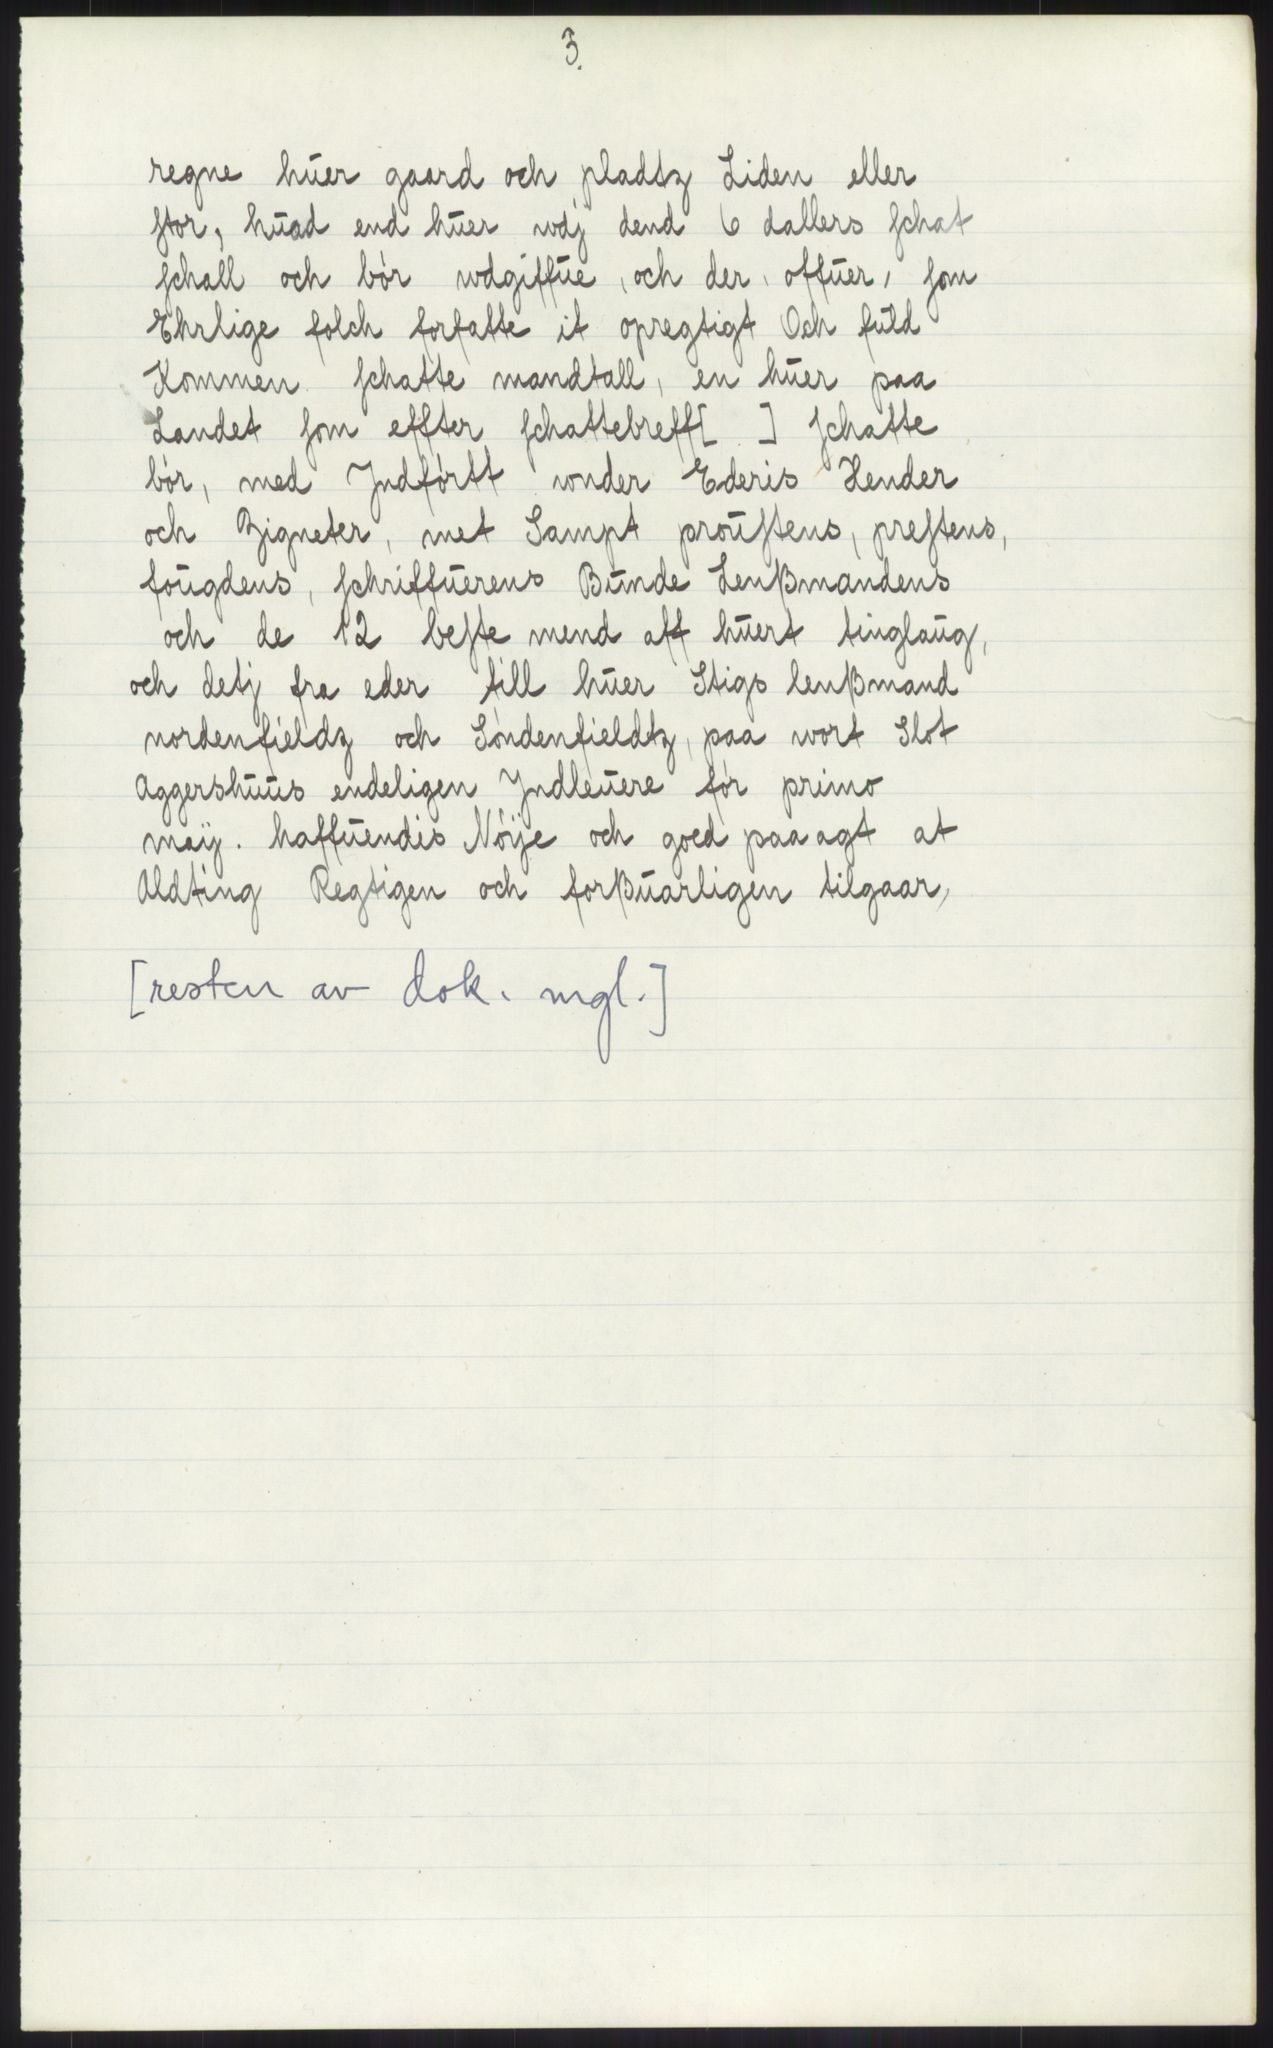 3.
regne huer gaard och pladtz Liden eller
stor, huad end huer wdj dend 6 dallers schat
schall och bör wdgiffue, och der, offuer, som
Ehrlige folch forfatte it opregtigt Och fuld
Kommen schatte mandtall, en huer paa
Landet som effter schattebreff[ ] schatte
bör, med Jndförtt wnder Ederis Hender
och Zigneter, met Sampt proustens, prestens,
fougdens, schriffuerens Bunde Lenßmandens
och de 12 beste mend aff huert tinglaug,
och detj fra eder till huer Stigs lenßmand
nordenfieldz och Söndenfieldtz, paa wort Slot
Aggershuus endeligen Jndleuere för primo
maij. haffuendis Nöije och goed paa agt at
Aldting Regtigen och forßuarligen tilgaar,
[resten av dok. mgl.]